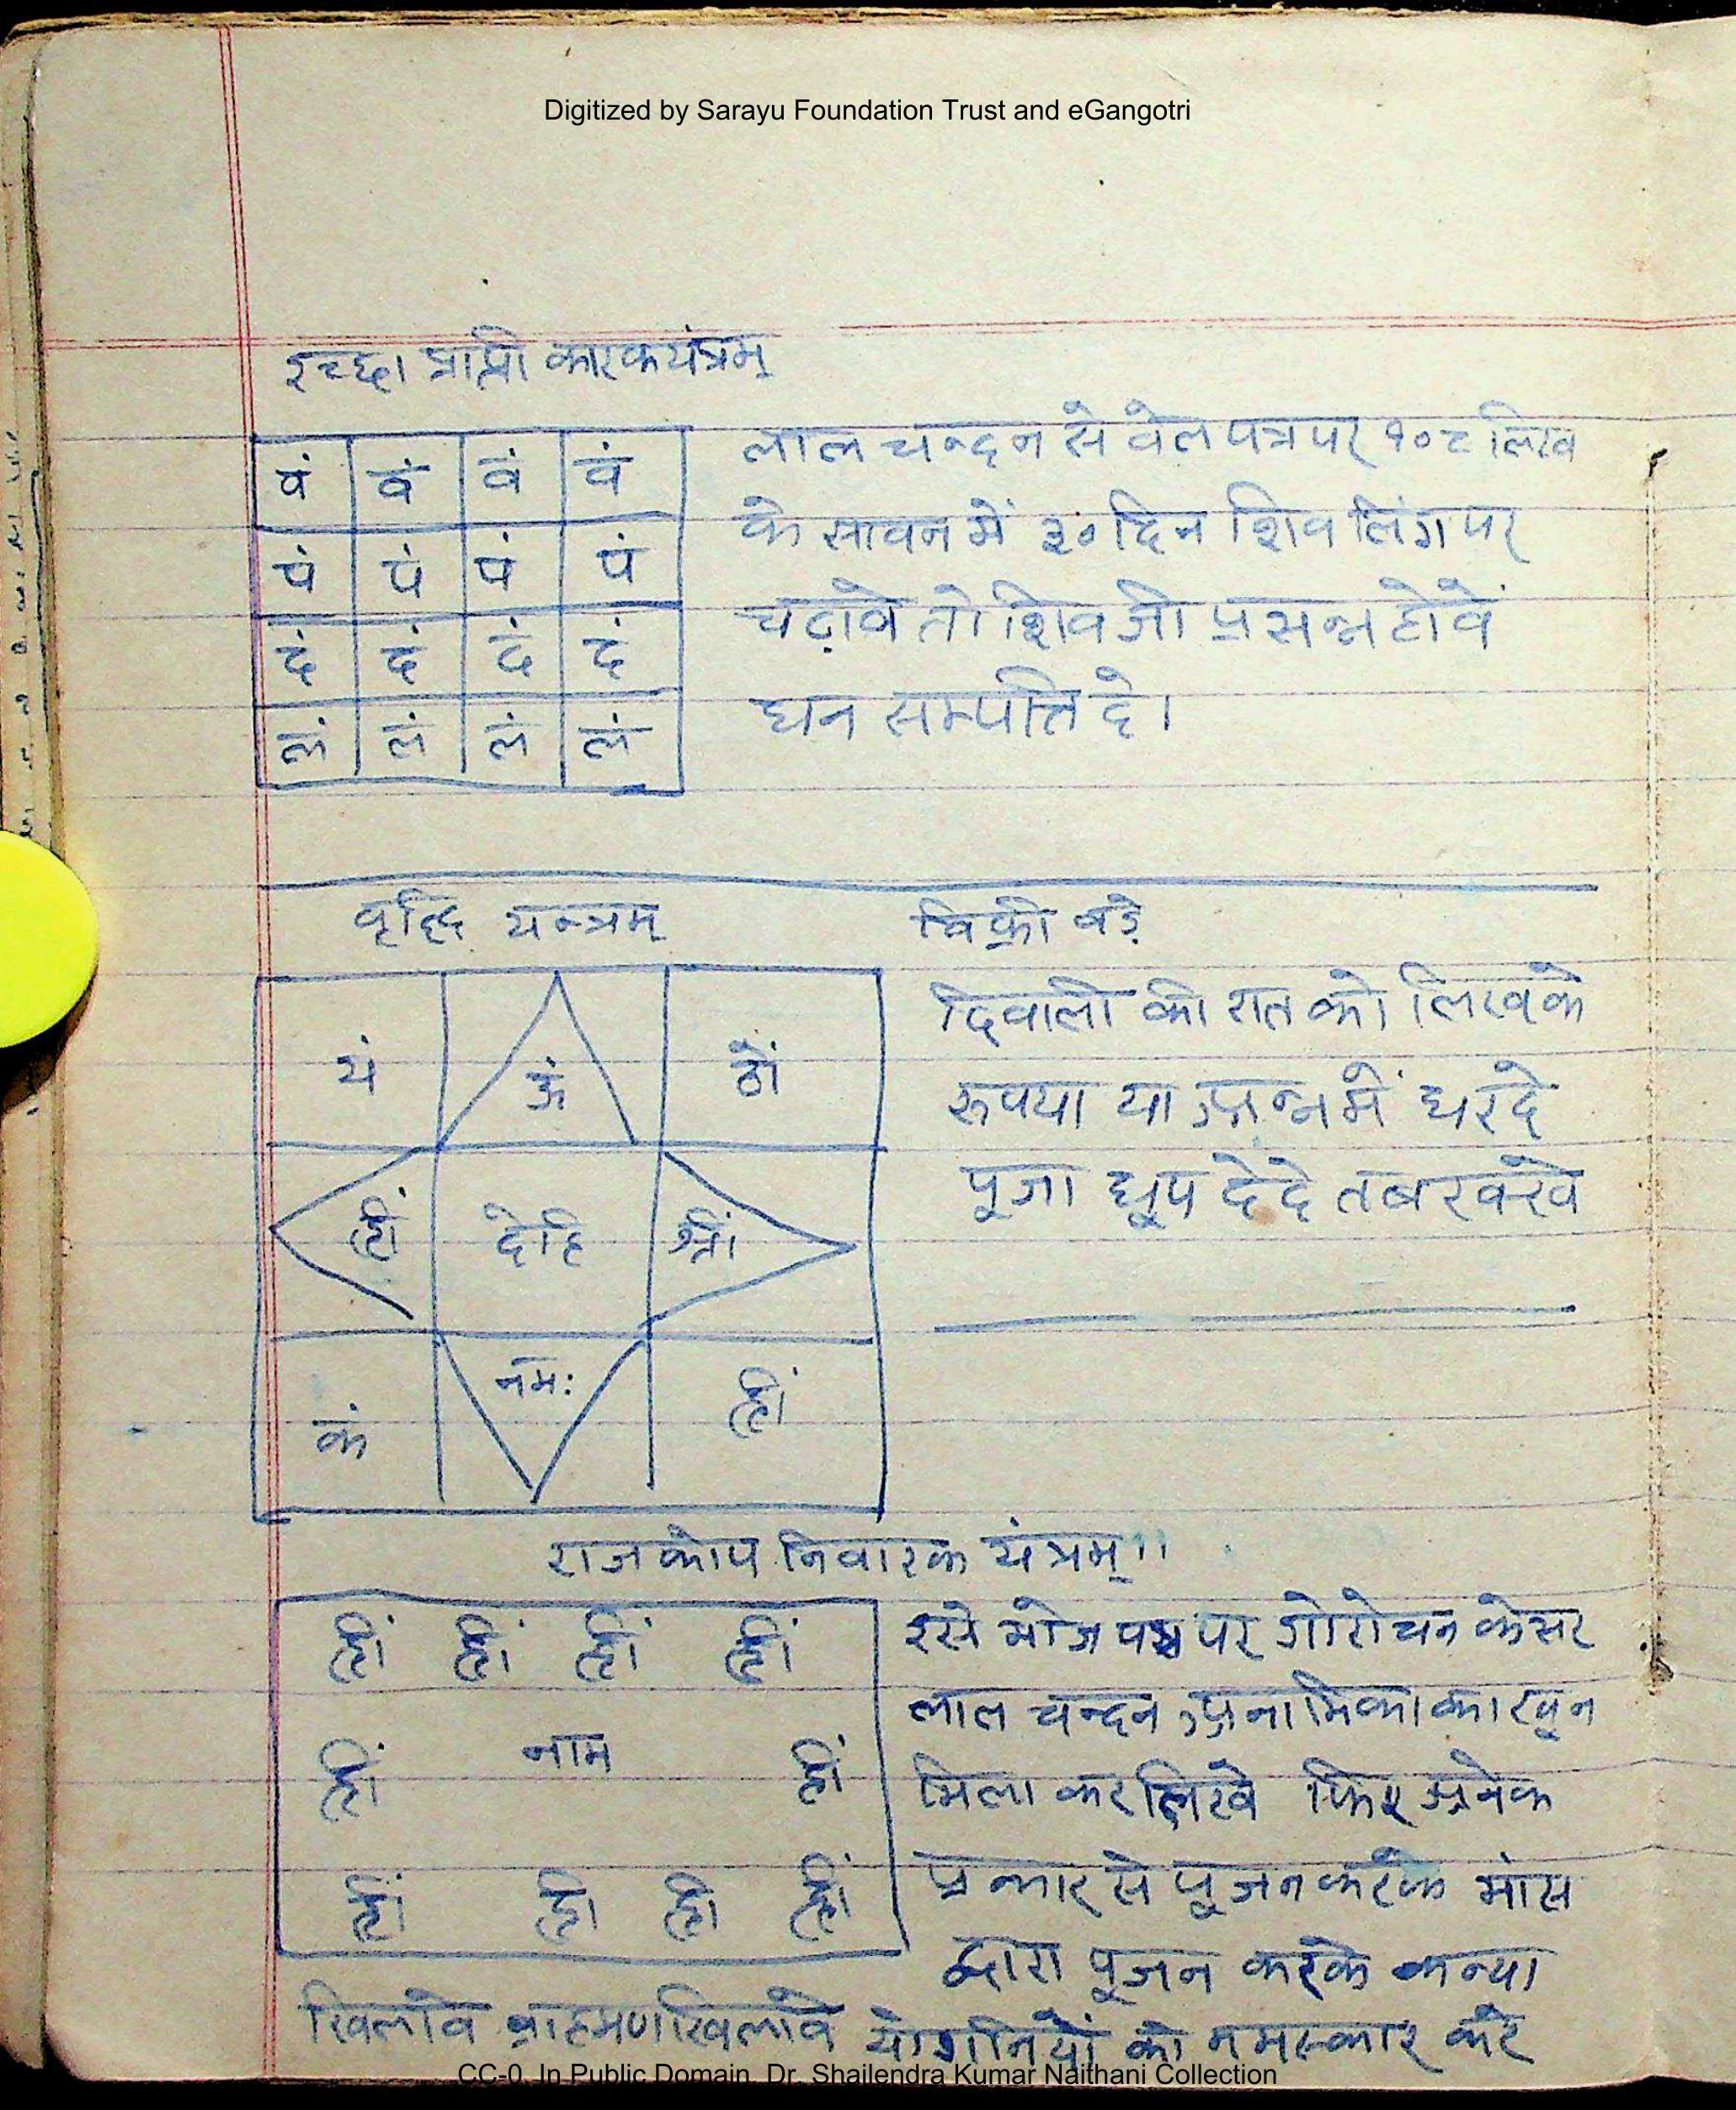 Digitized by Sarayu Foundation Trust and eGangotri
इच्छा प्राप्ती कारक यंत्रम्
वं वं वं वं
पं पं पं पं
दं दं दं दं
लं लं लं लं
लाल चन्दन से वेल पत्र पर १०८ लिख
के सावन में ३० दिन शिव लिंग पर
चढ़ावे तो शिव जी प्रसन्न होवें
धन सम्पत्ति दे।
वृद्धि यन्त्रम्
यं ऊं ठों
ह्रीं देहि श्रीं
कं नमः ह्रीं
विक्री बड़े
दिवाली की रात को लिखके
रूपया या अन्न में धर दे
पूजा धूप दे दे तब रक्खे
राज कोप निवारक यंत्रम्।।
ह्रीं ह्रीं ह्रीं ह्रीं
ह्रीं नाम ह्रीं
ह्रीं ह्री ह्री ह्रीं
इसे भोज पत्र पर गोरोचन केसर
लाल चन्दन अनामिका का खून
मिला कर लिखे फिर अनेक
प्रकार से पूजन करके मांस
द्वारा पूजन करके कन्या
खिलावे ब्राहमण खिलावे योगनियों को नमस्कार करे
CC-0. In Public Domain. Dr. Shailendra Kumar Naithani Collection